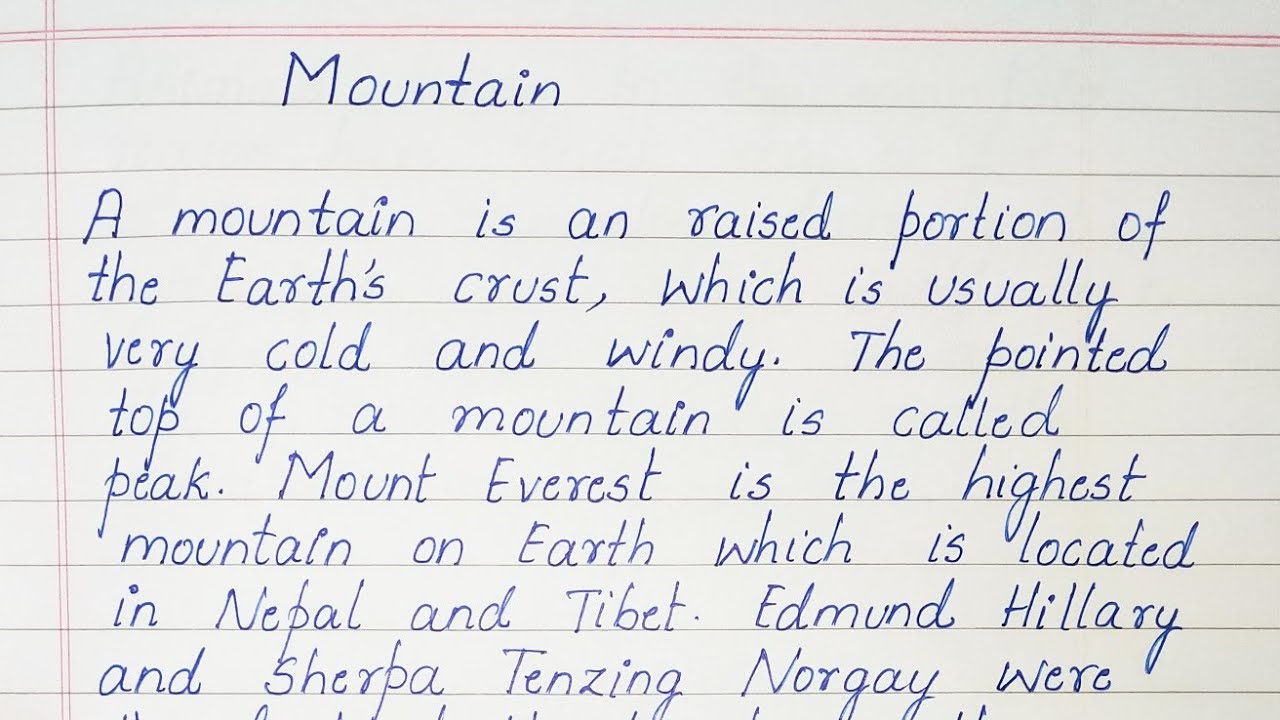 Mountain
A mountain is an raised portion of
the Earth's crust, which is usually
very cold and windy. The pointed
top of a mountain is called
peak. Mount Everest is the highest
mountain on Earth which is located
in Nepal and Tibet. Edmund Hillary
and Sherpa Tenzing Norgay were